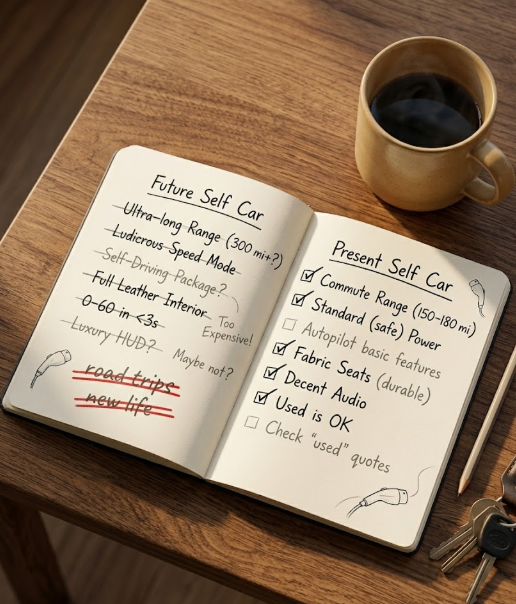 Future Self Car
Ultra-long Range (300 mi+?)
Ludicrous Speed Mode
Self-Driving Package?
Full Leather Interior
Too
Expensive!
0-60 in <3s
Luxury HUD?
Maybe not?
road trips
new life
Present Self Car
Commute Range (150-180 mi)
Standard (safe) Power
Autopilot basic features
Fabric Seats (durable)
Decent Audio
Used is OK
Check "used" quotes